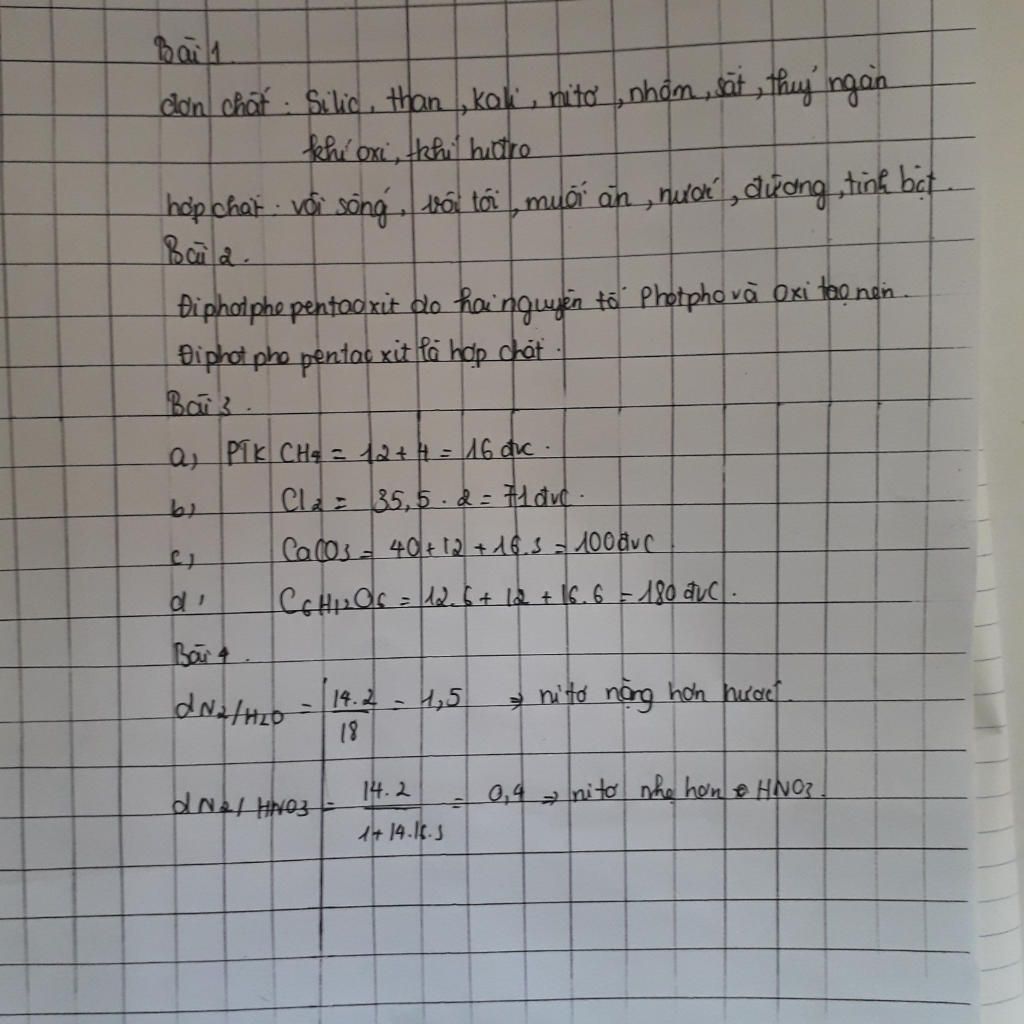 Bài 1
đơn chất : Silic, than, kali, nitơ, nhôm, sắt, thuỷ ngân
khí oxi, khí hiđro
hợp chất : vôi sống, vôi tôi, muối ăn, nước, đường, tinh bột.
Bài 2.
Điphotpho pentaoxit do hai nguyên tố Photpho và Oxi tạo nên.
Điphotpho pentaoxit là hợp chất.
Bài 3.
a, PTK CH4 = 12 + 4 = 16 đvc.
b, Cl2 = 35,5 . 2 = 71 đvc.
c, CaCO3 = 40 + 12 + 16.3 = 100 đvC
d, C6H12O6 = 12.6 + 12 + 16.6 = 180 đvC.
Bài 4.
dN2/H2O = 14.2 / 18 = 1,5 => nitơ nặng hơn nước.
dN2/HNO3 = 14.2 / 1+14.16.3 = 0,4 => nitơ nhẹ hơn HNO3.